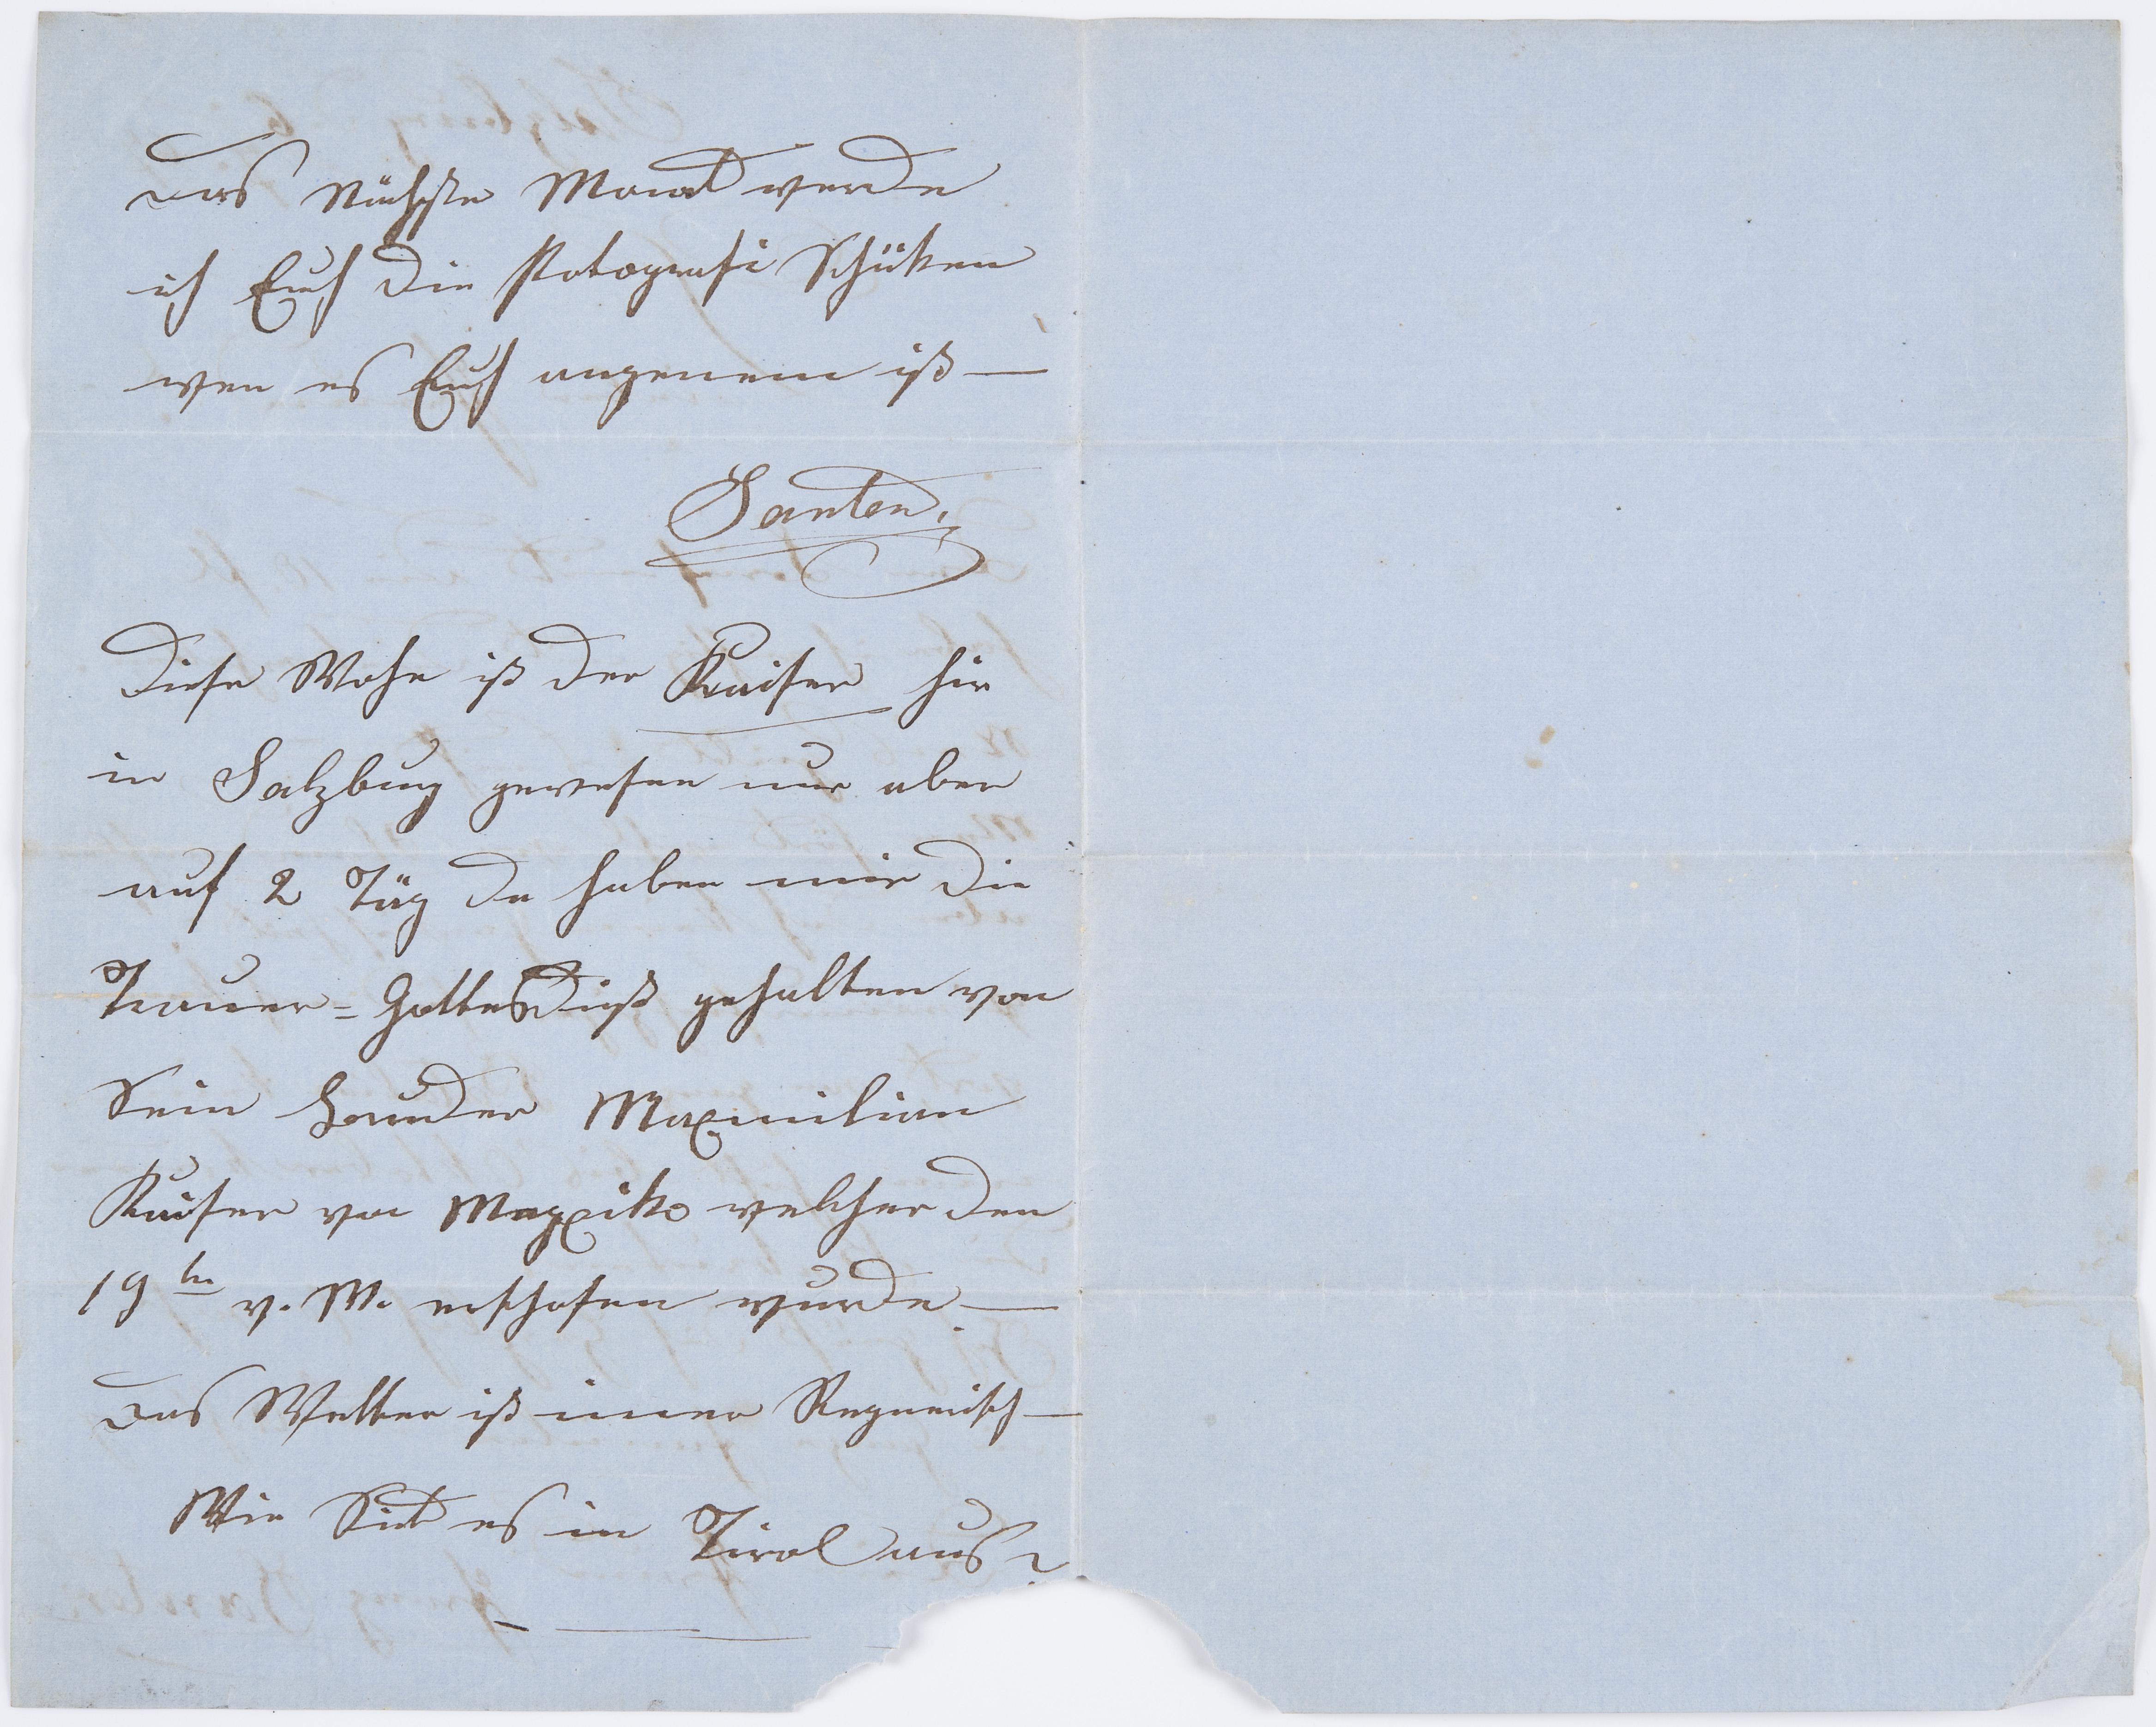 Das Nächste Monat werde
ich Euch die Potografi Schüken
wen es Euch angenem ist —
Santer.
Diese Wohe ist der Kaiser hir
in Salzburg gewesen nur aber
auf 2 Täg da haben mir die
Trauer=Gottesdinst gehalten von
Sein Bruder Maxmilian
Kaiser von Mexxiko welcher den
19ten v. M. erschosen wurde —
Das Wetter ist imer Regnerisch —
Wie Siet es in Tirol aus?